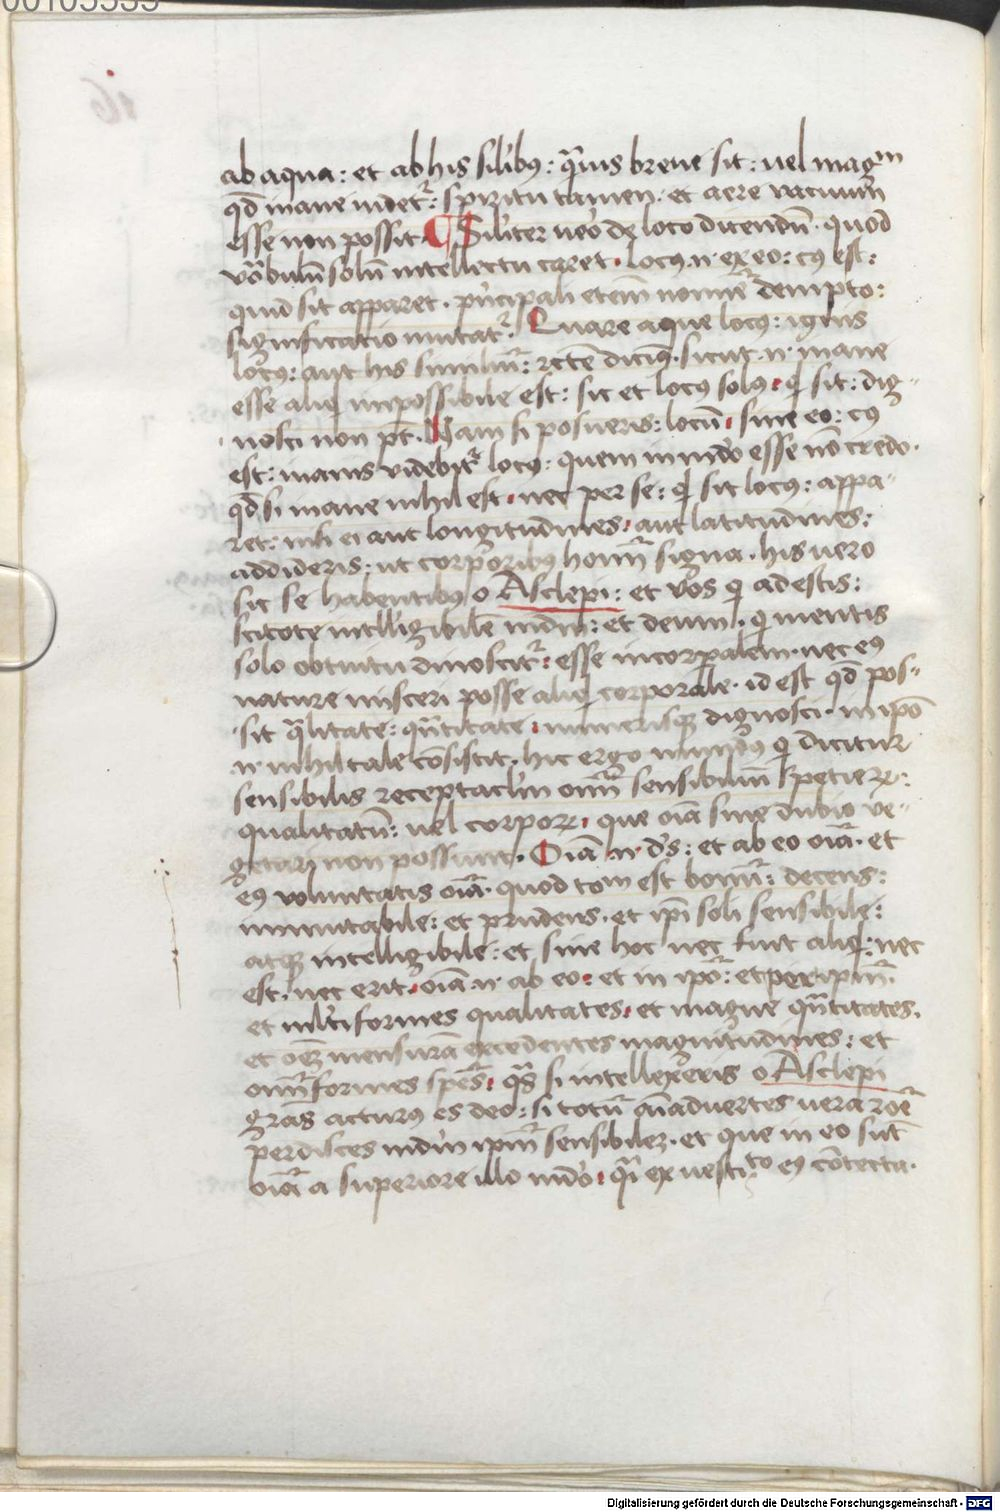 00105535
16
ab aqua: et ab his silibꝰ: qͣuis breue sit: uel magm
qd inane uidetᷣ: spiritu tamen. et aere uacuum
esse non possit. ¶ Silr̃iter ueo de loco dicendũ. quod
uõbulũ solũ intellectu caret. locꝰ .n. ex eo: cꝰ est:
quid sit apparet. pñcipali etem̃ nomie dempto:
significatio mutatᷣ. Quare aque locus: ignis
locꝰ: aut his similiũ: rcte dicimꝰ. sicut .n. inane
esse aliqͥ impossibile est: sic et locꝰ solꝰ. qͥ sit: dig-
nosci non pt. Nam si posueris: locũ. sine eo: cꝰ
est: inanis videbitᷣ locꝰ: quem in mdo esse nõ credo.
qd si inane nihil est. nec per se: qͥ sit locꝰ: appa-
ret: nisi ei aut longitudines. aut latitudines:
addideris. ut corporibꝰ homĩ signa. his uero
sic se habentibꝰ o Asclepi: et vos qͥ adestis:
scitote intlligibilẽ mdm: et deum. qͥ mentis
solo obtuitu dinoscitᷣ: esse incorpalem. nec eꝰ
nature misceri posse aliqͥ corporale. id est qd pos-
sit qͣlitate: qñtitate. numerisqꝫ dignosci. in ipõ
.n. nihil tale cõsistit. hic ergo mundꝰ qͥ dicitur
sensibilis receptaclm oim̃ sensibiliũ specierꝝ:
qualitatũ: uel corporꝝ. que oia sine dubio ve-
getari non possunt. Oia .n. ds: et ab eo oia. et
eꝰ voluntatis oia. quod tom est bonũ: decens:
inmutabile: et prudens. et ipi soli sensibile:
atqꝫ intelligibile: et sine hoc nec fuit aliqͥ: nec
est. nec erit. oia .n. ab eo: et in ipo: et per ipm.
et mlti formes qualitates. et magne qñtitates.
et oẽꝫ mensurã excedentes magnitudines: et
omĩformes spẽs. qͣs si intellexeris o Asclepi
grãs acturꝰ es deo: si totũ aĩaduertes uera rõe
perdisces mdm ipm sensibileꝫ. et que in eo sũt
oia a superiore illo mdo. qͣi ex uestito eꝰ cõtecta.
Digitalisierung gefördert durch die Deutsche Forschungsgemeinschaft - DFG